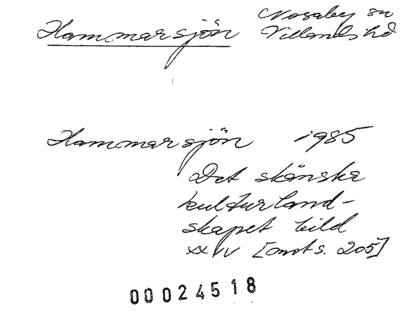 Hammarsjön
Nosaby sn
Villands hd
Hammarsjön 1985
Det skånska
kulturland-
skapet bild
XXIV [mots. 205]
00024518